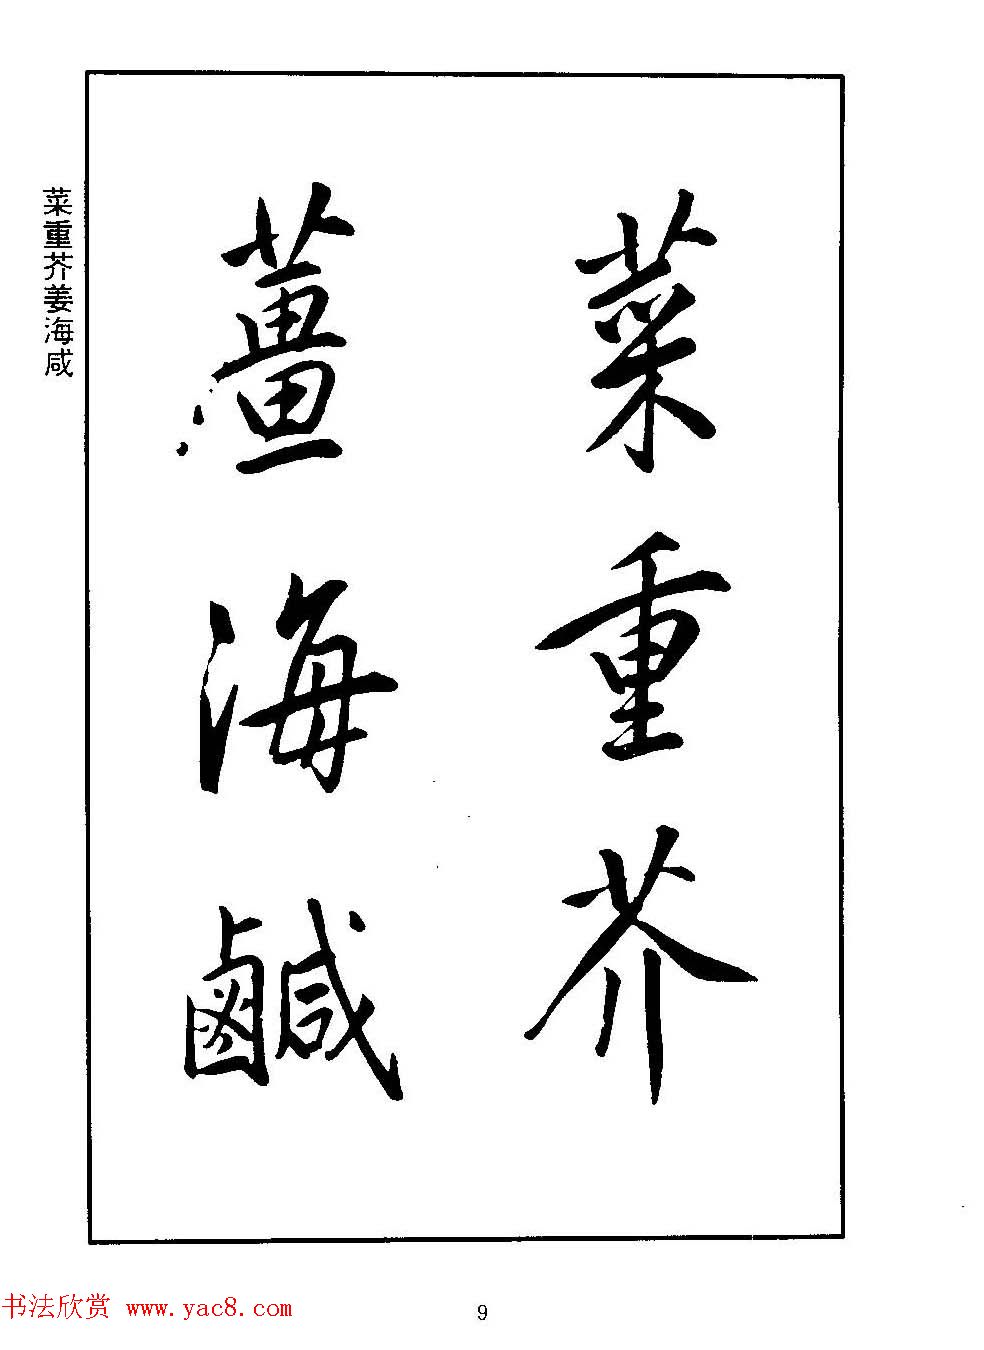 菜重芥
薑海鹹
菜重芥姜海咸
书法欣赏 www.yac8.com
9